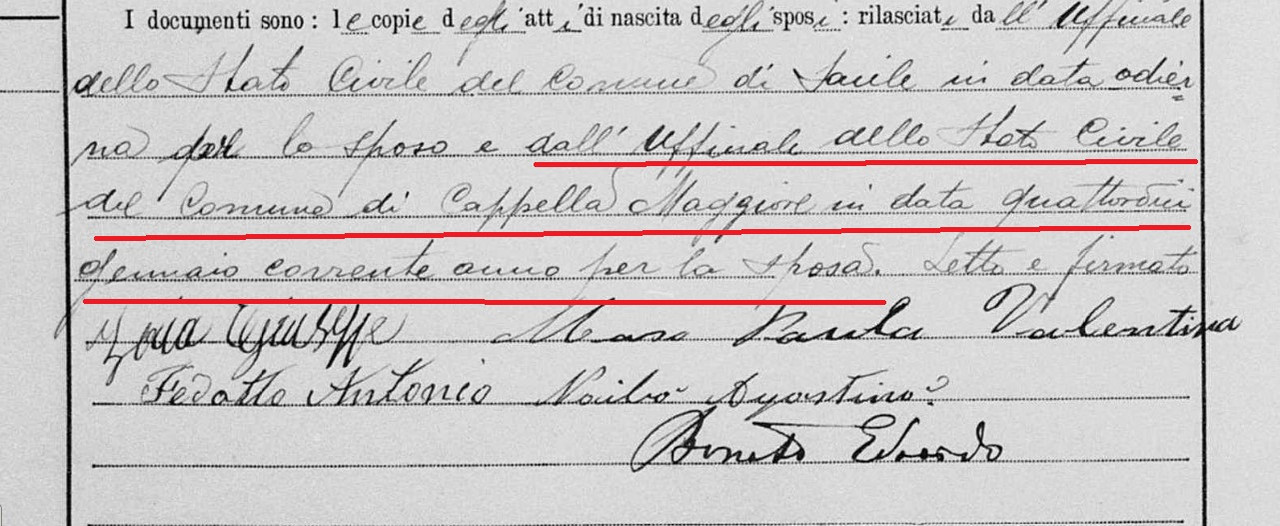 I documenti sono: le copie degli atti di nascita degli sposi: rilasciati dall' Uffiziale
dello Stato Civile del Comune di Sacile in data odier=
na per lo sposo e dall' Uffiziale dello Stato Civile
del Comune di Cappella Maggiore in data quattordici
gennaio corrente anno per la sposa. Letto e firmato
Giuseppe Maso Paula Valentina
Fedatto Antonio Naibo Agostino
Bonetto Edoardo